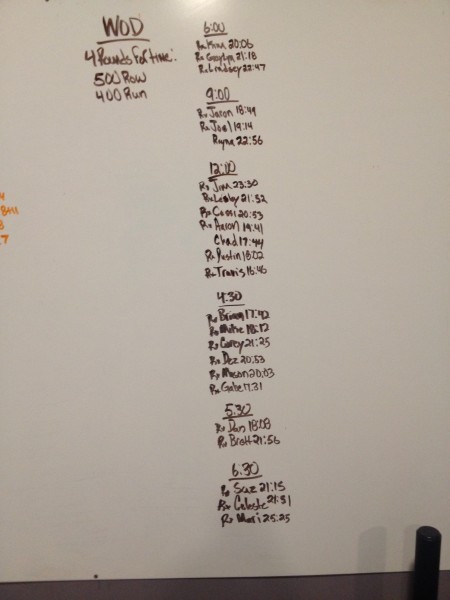 WOD
4 Rounds For time:
500 Row
400 Run
6:00
Rx Kim 20:06
Rx 21:18
Rx Lindsey 22:47
9:00
Rx Jaron 18:49
Rx Joel 19:14
Rayna 22:56
12:10
Rx Jim 23:30
Rx Lesley 21:52
Rx Cassi 20:53
Rx Aaron 19:41
Chad 17:44
Rx Dustin 18:02
Rx Travis 16:46
4:30
Rx Briana 17:42
Rx Mike 18:12
Rx Corey 21:25
Rx Dez 20:53
Rx Mason 20:03
Rx Gabe 17:31
5:30
Rx Dan 18:08
Rx Brett 21:56
6:30
Rx Saz 21:15
Rx Celeste 21:51
Rx 25:25
7